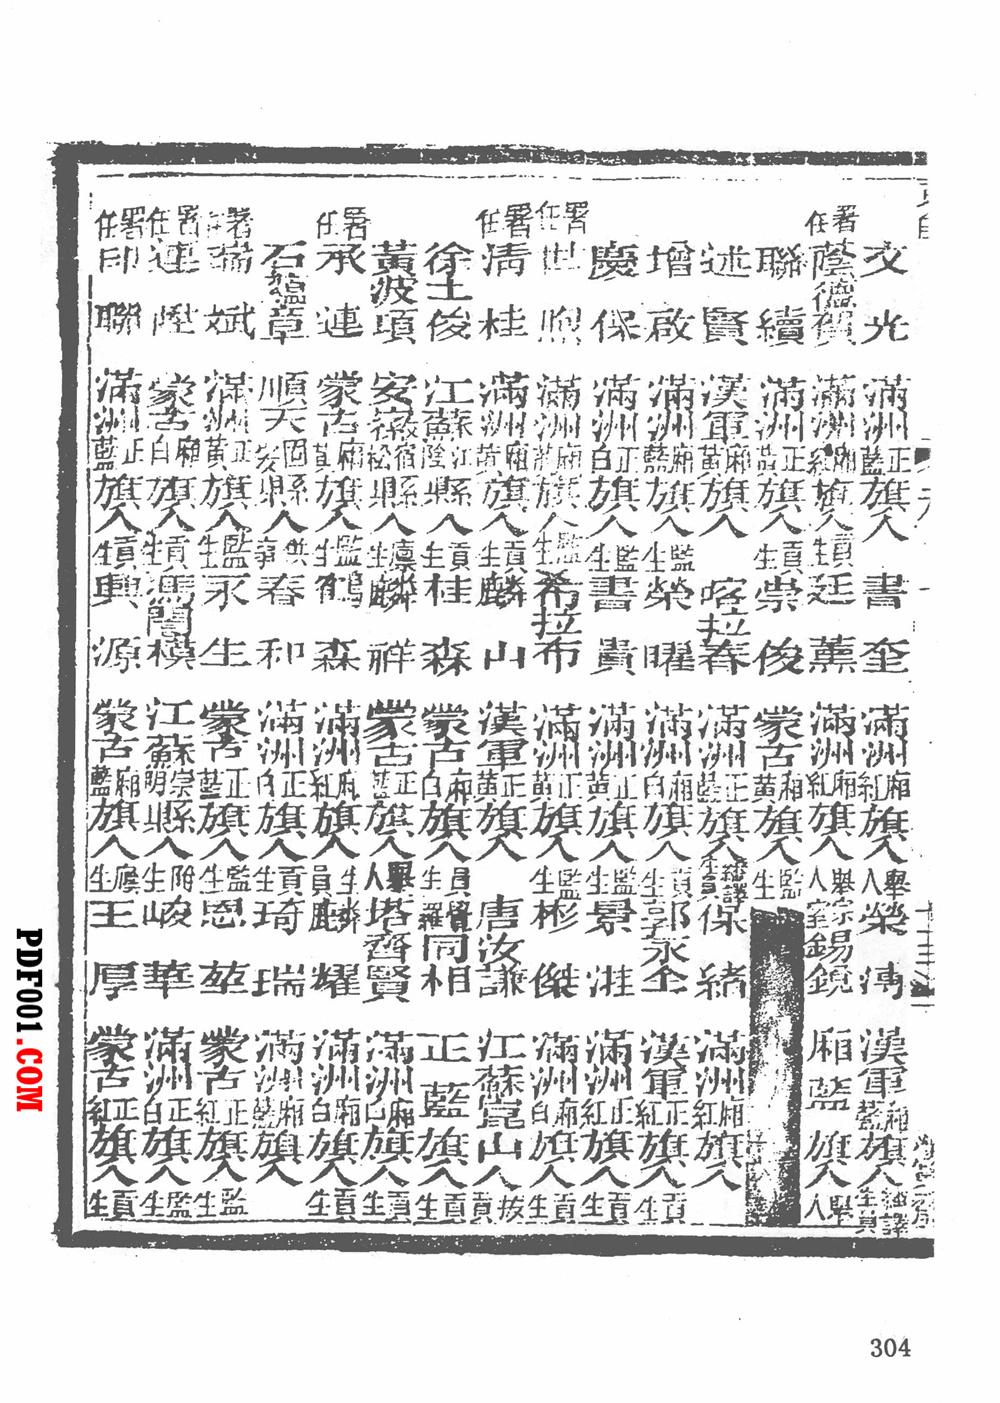 文光 滿洲正藍旗人 書奎 滿洲廂紅旗人舉人 榮溥 漢軍廂藍旗人繙譯生員
署任蔭德賀 滿洲廂紅旗人貢生 廷薰 滿洲廂紅旗人舉人 宗室錫鏡 廂藍旗人舉人
聯續 滿洲正黃旗人貢生 崇俊 蒙古廂黃旗人監生
述賢 漢軍廂黃旗人 喀拉春 滿洲正藍旗人繙譯生員 保緒 滿洲廂紅旗人
增啟 滿洲廂藍旗人監生 榮曜 滿洲廂白旗人貢生 郭永全 漢軍正紅旗人貢生
慶保 滿洲正白旗人監生 書貴 滿洲正黃旗人監生 景淮 滿洲正紅旗人貢生
署任世煦 滿洲廂黃旗人監生 希拉布 滿洲正黃旗人監生 彬傑 滿洲廂白旗人貢生
署任清桂 滿洲廂黃旗人貢生 麟山 漢軍正黃旗人 唐汝謙 江蘇崑山人拔
徐士俊 江蘇江陰縣人貢生 桂森 蒙古廂白旗人官學生 羅同相 正藍旗人貢生
黃波項 安徽宿松縣人廩生 麟祥 蒙古正藍旗人舉人 塔齊賢 滿洲廂白旗人貢生
署任承連 蒙古廂黃旗人監生 鶴森 滿洲廂紅旗人生員 麟耀 滿洲廂白旗人貢生
石蘊章 順天固安縣人供事 春和 滿洲正白旗人貢生 琦瑞 滿洲廂藍旗人
署任瑞斌 滿洲正黃旗人監生 永生 蒙古正藍旗人監生 恩 蒙古正紅旗人監生
署任連陞 蒙古廂白旗人貢生 馮誾模 江蘇崇明縣人附生 峻華 滿洲正白旗人監生
署任印聯 滿洲正藍旗人貢生 興源 蒙古廂藍旗人廕生 玉厚 蒙古正紅旗人貢生
PDF001.COM
304